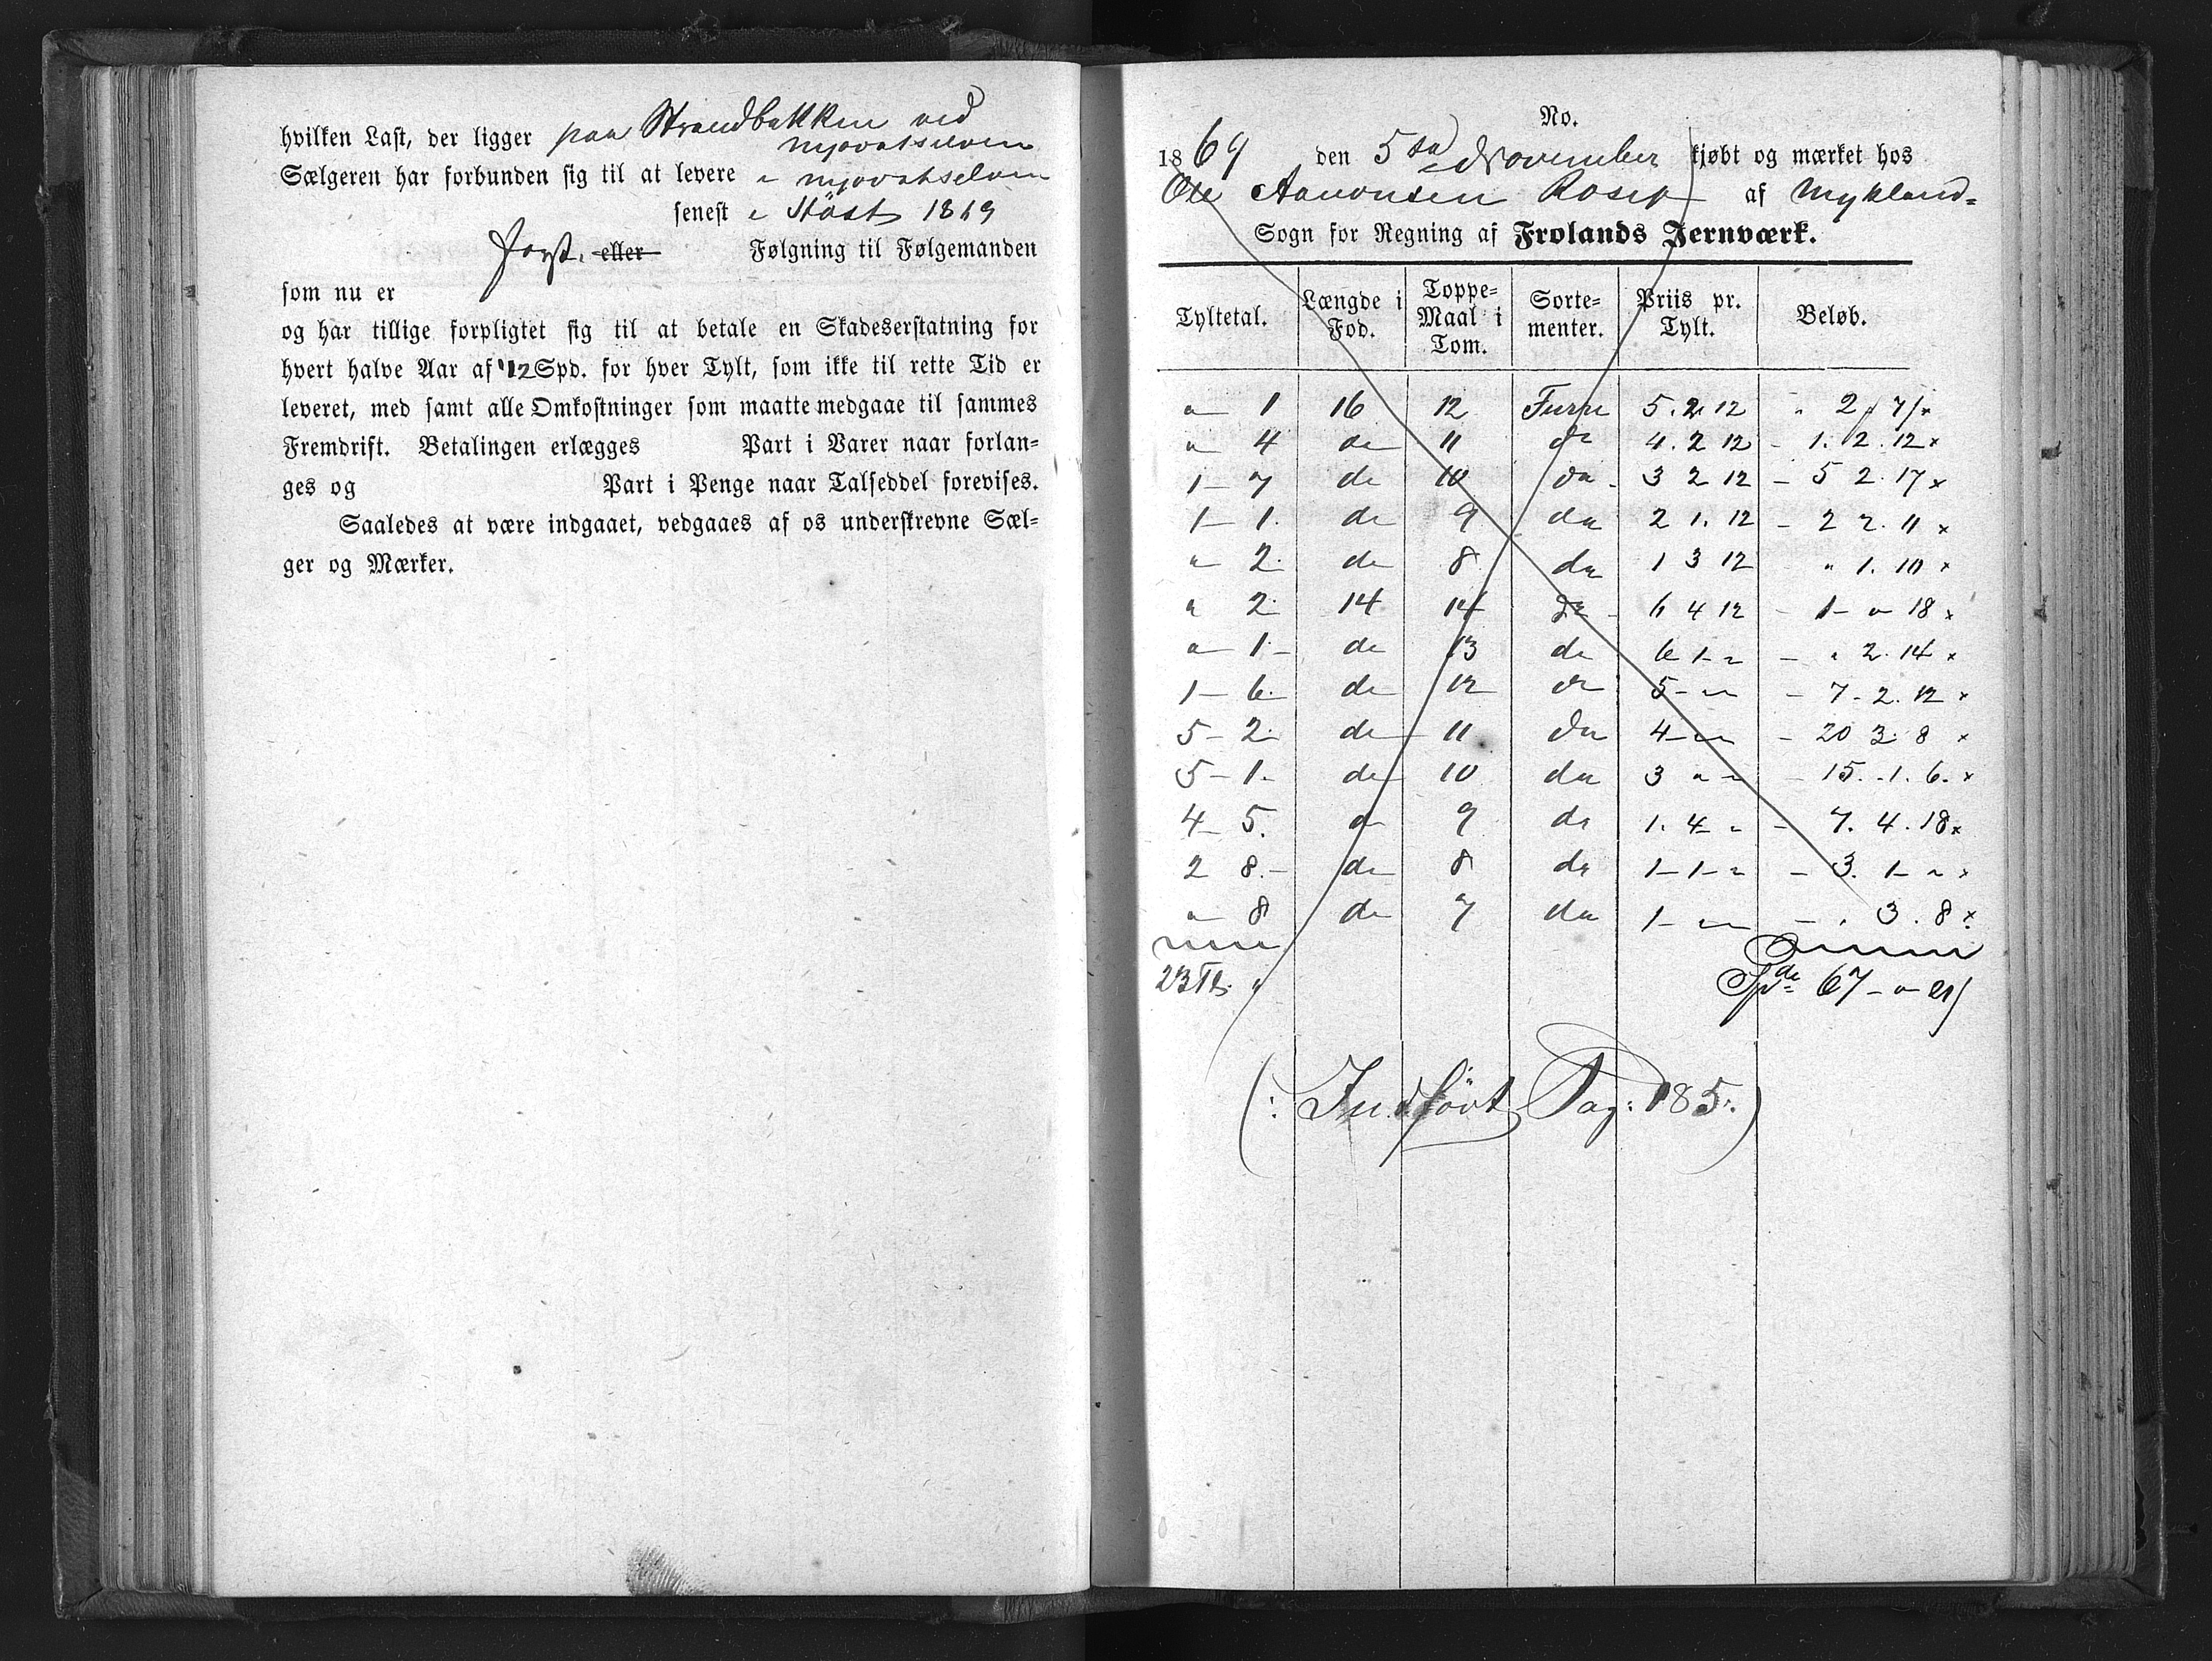 hvilken Last, der ligger paa Strandbakken ved
Sælgeren har forbunden sig til at levere
senest i Höst 1869
eller Følgning til Følgemanden
som nu er
og har tillige forpligtet sig til at betale en Skadeserstatning for
hvert halve Aar af 12 Spd. for hver Tylt, som ikke til rette Tid er
leveret, med samt alle Omkostninger som maatte medgaae til sammes
Fremdrift. Betalingen erlægges Part i Varer naar forlan-
ges og Part i Penge naar Talseddel forevises.
Saaledes at være indgaaet, vedgaaes af os underskrevne Sæl-
ger og Mærker.
No.
1869 den 5te November kjøbt og mærket hos
Ole Aanonsen af Mykland-
Sogn for Regning af Frolands Jernværk.
Tyltetal. Længde i Fod. Toppe-Maal i Tom. Sortementer. Priis pr. Tylt. Beløb.
" 1 16 12 Furu 5. 2 12 " 2 7 x
" 4 do 11 do 4. 2 12 - 1. 2. 12 x
1 - 7 do 10 do - 3 2 12 - 5 2. 17 x
1 - 1. do 9 do 2 1. 12 - 2 2. 11 x
" 2. do 8 do 1 3 12 " 1. 10 x
" 2 14 14 do - 6 4 12 - 1 - " 18 x
" 1 - do 13 do 6 1 - " - " 2. 14 x
1 - 6. do 12 do 5 - " " - 7 - 2. 12 x
5 - 2. do 11 do 4 - " " - 20 3. 8 x
5 - 1. do 10 do 3 " " - 15. - 1. 6. x
4 - 5. do 9 do 1. 4 - " - 7. 4. 18 x
2 8. - do 8 do 1 - 1 - " - 3. 1 - " x
" 8 do 7 do 1 - " " - . 3. 8 x
23 Tl. " Spd. 67 - "
(: Indfört Pag: 185:)